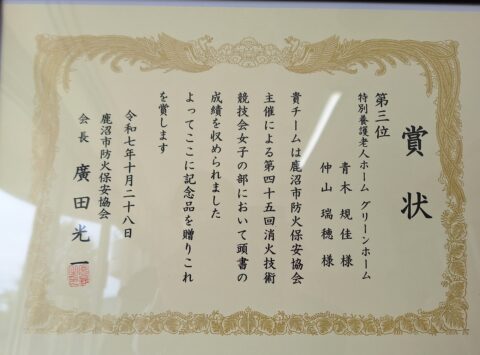 賞状
第三位
特別養護老人ホーム グリーンホーム
青木 規佳 様
仲山 瑞穂 様
貴チームは鹿沼市防火保安協会
主催による第四十五回消火技術
競技会女子の部において頭書の
成績を収められました
よってここに記念品を贈りこれ
を賞します
令和七年十月二十八日
鹿沼市防火保安協会
会長 廣田光一